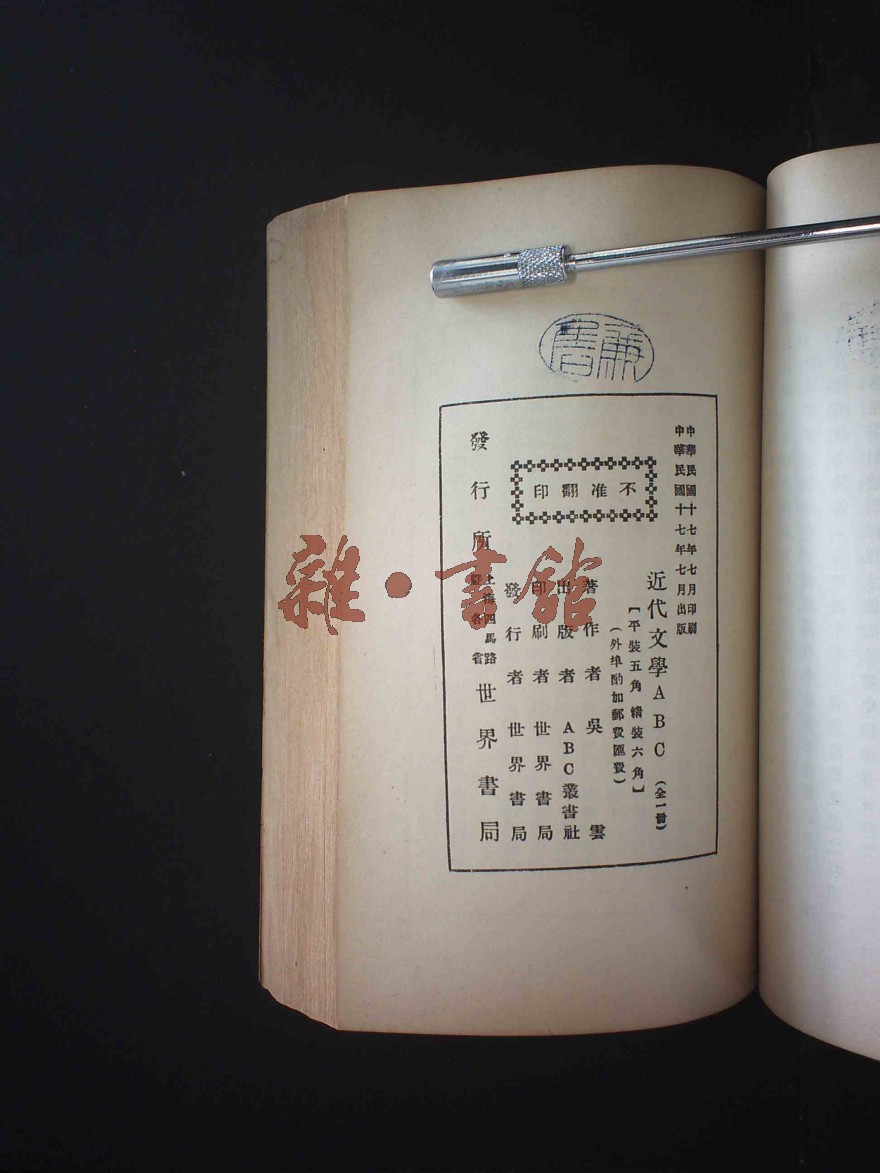 中華民國十七年七月印刷
中華民國十七年七月出版
近代文學ABC（全一冊）
【平裝五角 精裝六角】
（外埠酌加郵費匯費）
不准翻印
著作者 吳雲
出版者 ABC叢書社
印刷者 世界書局
發行者 世界書局
發行所 上海四馬路暨各省 世界書局
雜·書館